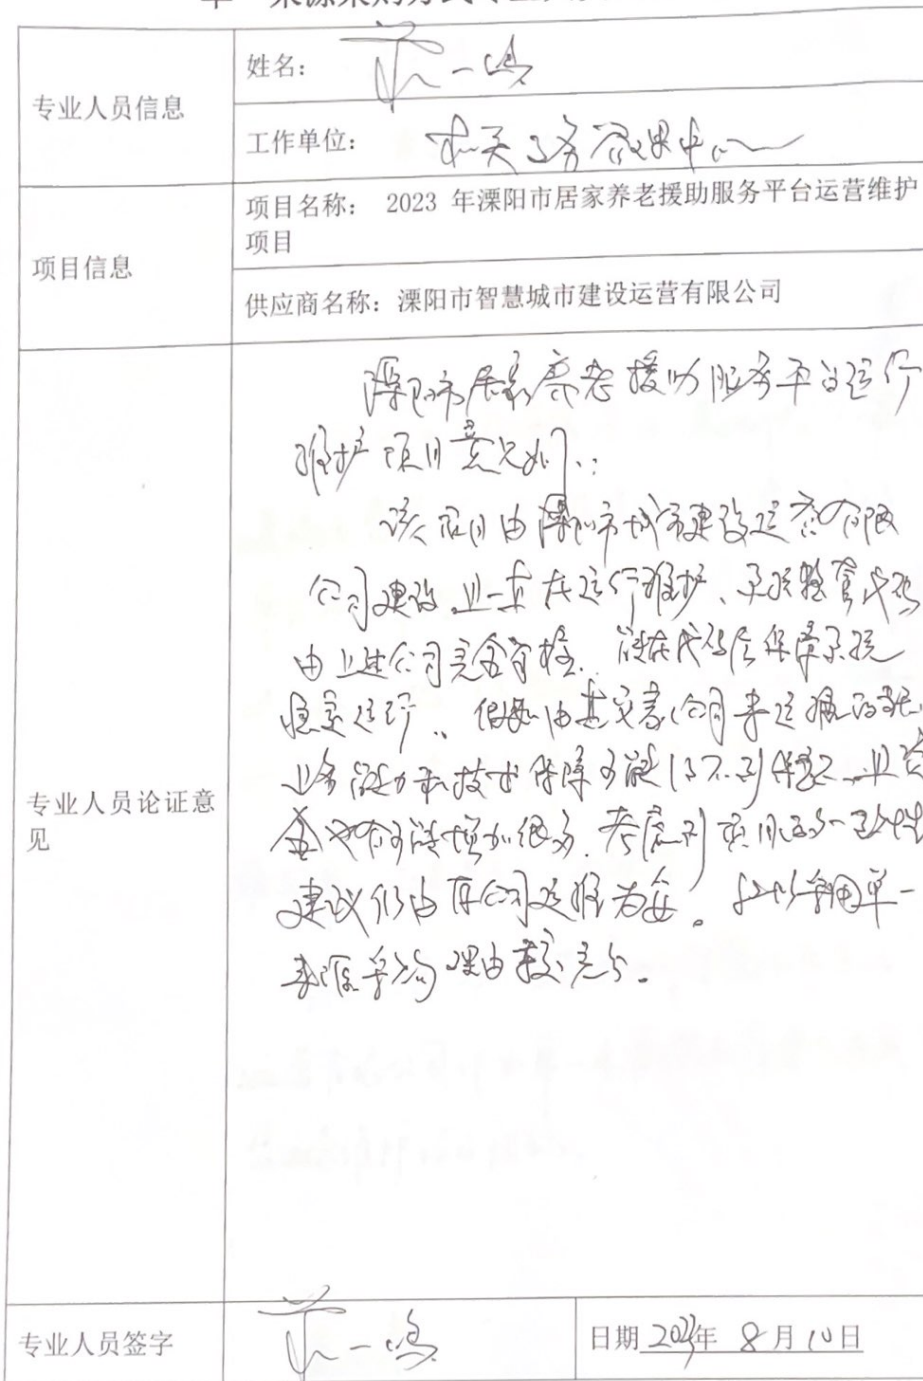 单一来源采购方式专业人
专业人员信息
姓名:
一鸣
工作单位:
机关事务管理中心
项目信息
项目名称: 2023 年溧阳市居家养老援助服务平台运营维护
项目
供应商名称: 溧阳市智慧城市建设运营有限公司
专业人员论证意
见
溧阳市居家养老援助服务平台运行
维护项目意见如下:
该项目由溧阳市城市建设运营有限
公司建设,且一直在运行维护、系统整套代码
由上述公司完全掌握. 能在代码层保障系统
稳定运行. 假如由其它公司来运维的话,
业务能力和技术保障可能得不到保证,且资
金也有可能增加很多. 考虑到项目的一致性
建议仍由原公司运维为妥。所以采用单一
来源采购理由较充分。
专业人员签字
一鸣
日期 2023年 8月10日